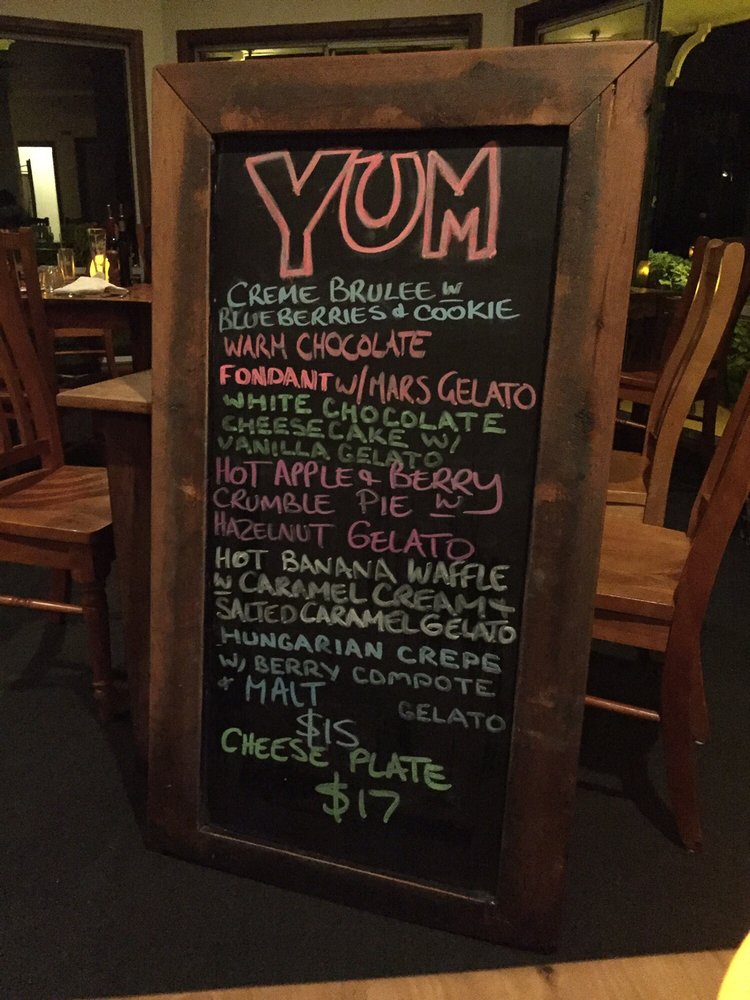 YUM
CREME BRULEE W
BLUEBERRIES & COOKIE
WARM CHOCOLATE
FONDANT W/ MARS GELATO
WHITE CHOCOLATE
CHEESECAKE W/
VANILLA GELATO
HOT APPLE & BERRY
CRUMBLE PIE W
HAZELNUT GELATO
HOT BANANA WAFFLE
W CARAMEL CREAM &
SALTED CARAMEL GELATO
HUNGARIAN CREPE
W/ BERRY COMPOTE
& MALT GELATO
$15
CHEESE PLATE
$17